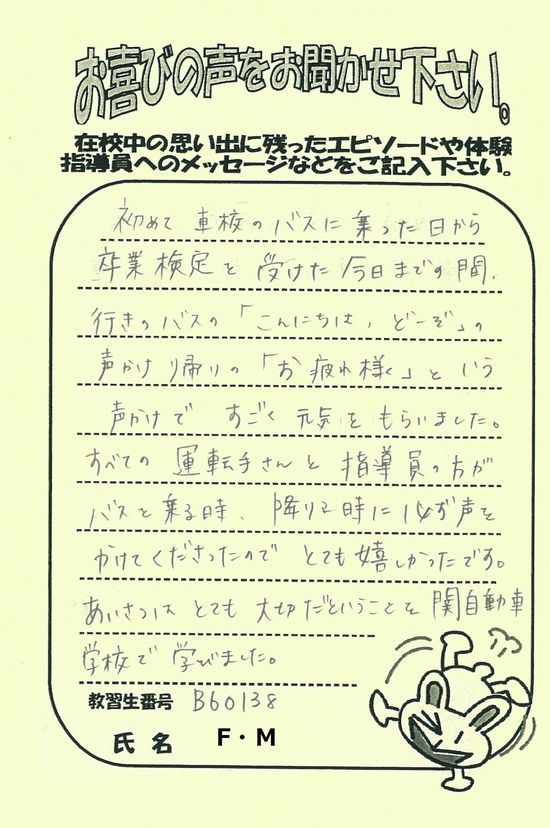 お喜びの声をお聞かせ下さい。
在校中の思い出に残ったエピソードや体験
指導員へのメッセージなどをご記入下さい。
初めて車校のバスに乗った日から
卒業検定を受けた今日までの間、
行きのバスの「こんにちは、どーぞ」の
声かけ帰りの「お疲れ様〜」という
声かけですごく元気をもらいました。
すべての運転手さんと指導員の方が
バスを乗る時、降りる時に必ず声を
かけてくださったのでとても嬉しかったです。
あいさつはとても大切だということを関自動車
学校で学びました。
教習生番号 B60138
氏名 F・M